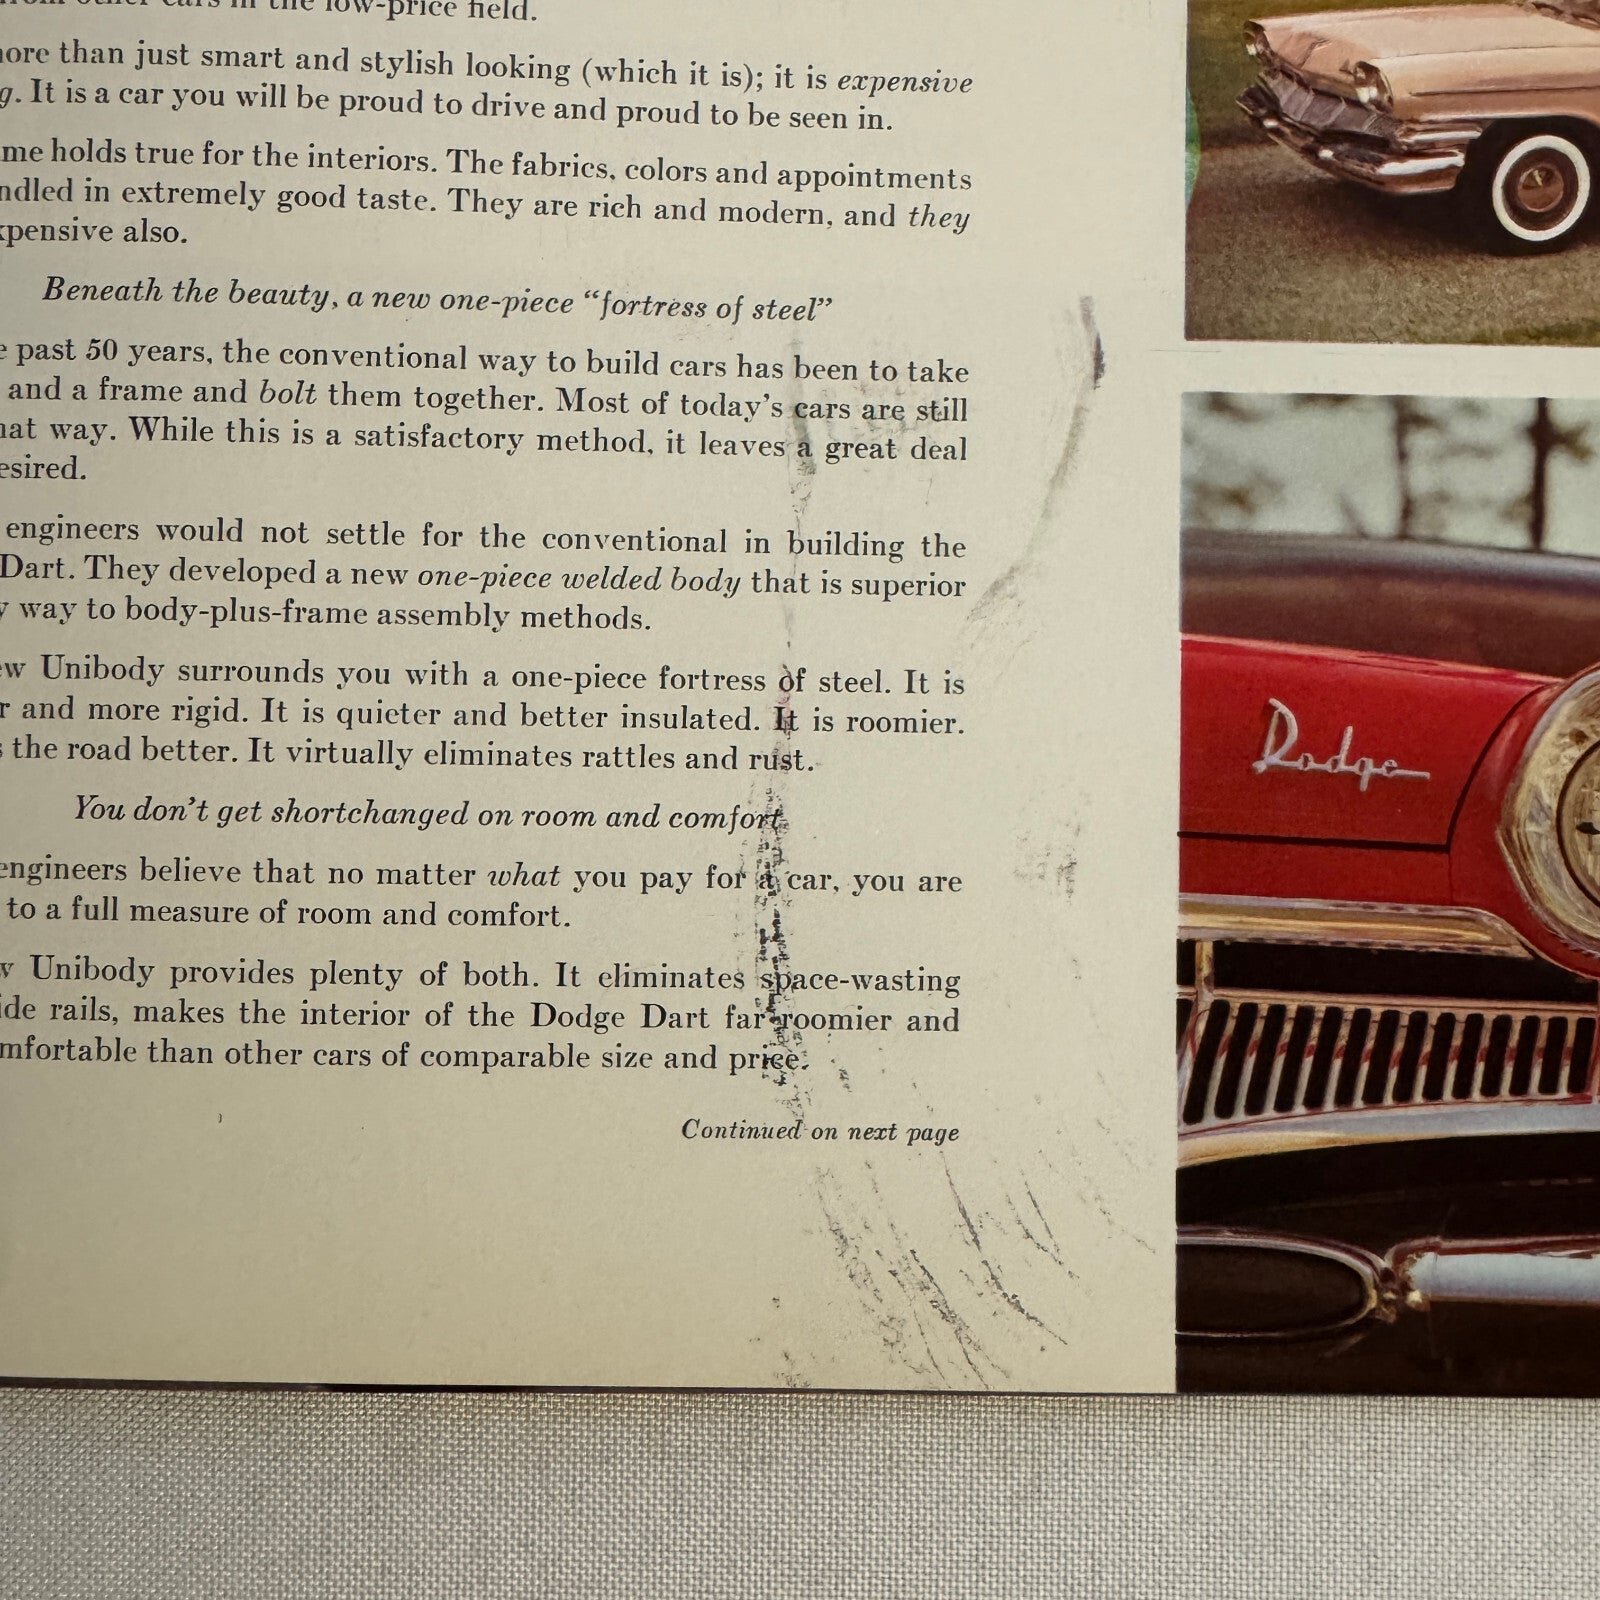 other cars in the low-price field.
than just smart and stylish looking (which it is); it is expensive
It is a car you will be proud to drive and proud to be seen in.
holds true for the interiors. The fabrics, colors and appointments
in extremely good taste. They are rich and modern, and they
also.
Beneath the beauty, a new one-piece “fortress of steel”
past 50 years, the conventional way to build cars has been to take
and a frame and bolt them together. Most of today’s cars are still
way. While this is a satisfactory method, it leaves a great deal
engineers would not settle for the conventional in building the
Dart. They developed a new one-piece welded body that is superior
way to body-plus-frame assembly methods.
Unibody surrounds you with a one-piece fortress of steel. It is
and more rigid. It is quieter and better insulated. It is roomier.
the road better. It virtually eliminates rattles and rust.
You don’t get shortchanged on room and comfort
engineers believe that no matter what you pay for a car, you are
to a full measure of room and comfort.
Unibody provides plenty of both. It eliminates space-wasting
rails, makes the interior of the Dodge Dart far roomier and
than other cars of comparable size and price.
Continued on next page
Dodge